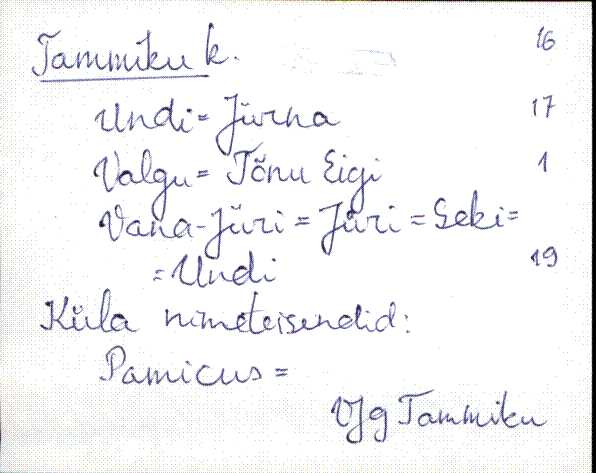 Tammiku k. 16
Undi = Jürna 17
Valgu = Tõnu Eigi 1
Vana-Jüri = Jüri = Seki =
= Undi 19
Küla nimeteisendid:
Pamicus =
Vjg Tammiku